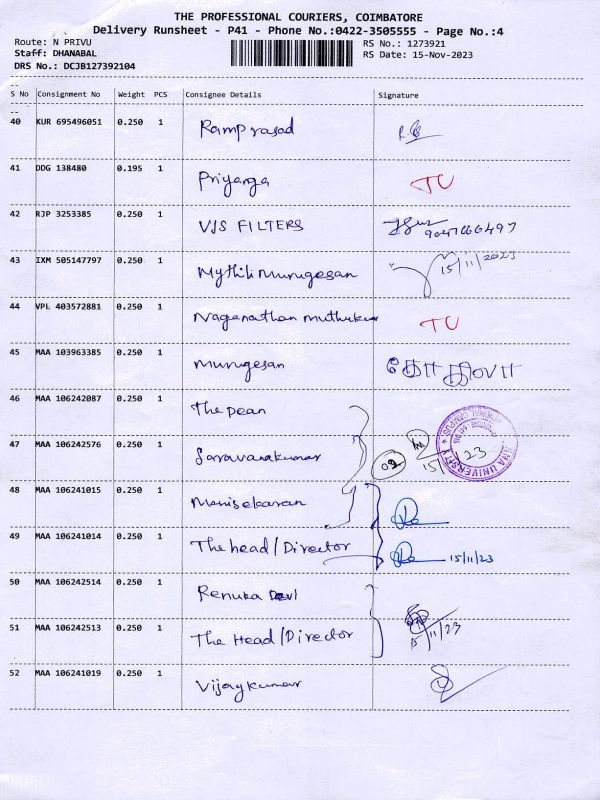 THE PROFESSIONAL COURIERS, COIMBATORE
Delivery Runsheet - P41 - Phone No.:0422-3505555 - Page No.:4
Route: N PRIVU RS No.: 1273921
Staff: DHANABAL RS Date: 15-Nov-2023
DRS No.: DCJB127392104
S No Consignment No Weight PCS Consignee Details Signature
40 KUR 695496051 0.250 1 Ramprasad
41 DDG 138480 0.195 1 Priyanga TU
42 RJP 3253385 0.250 1 VJS FILTERS
43 IXM 505147797 0.250 1 Mythili Murugesan 15/11/2023
44 VPL 403572881 0.250 1 Naganathan Muthukumar TU
45 MAA 103963385 0.250 1 Murugesan
46 MAA 106242087 0.250 1 The Dean
47 MAA 106242576 0.250 1 Saravanakumar 02 15/ /23
48 MAA 106241015 0.250 1 Manisekaran
49 MAA 106241014 0.250 1 The head/Director 15/11/23
50 MAA 106242514 0.250 1 Renuka Devi
51 MAA 106242513 0.250 1 The Head/Director 15/11/23
52 MAA 106241019 0.250 1 Vijaykumar